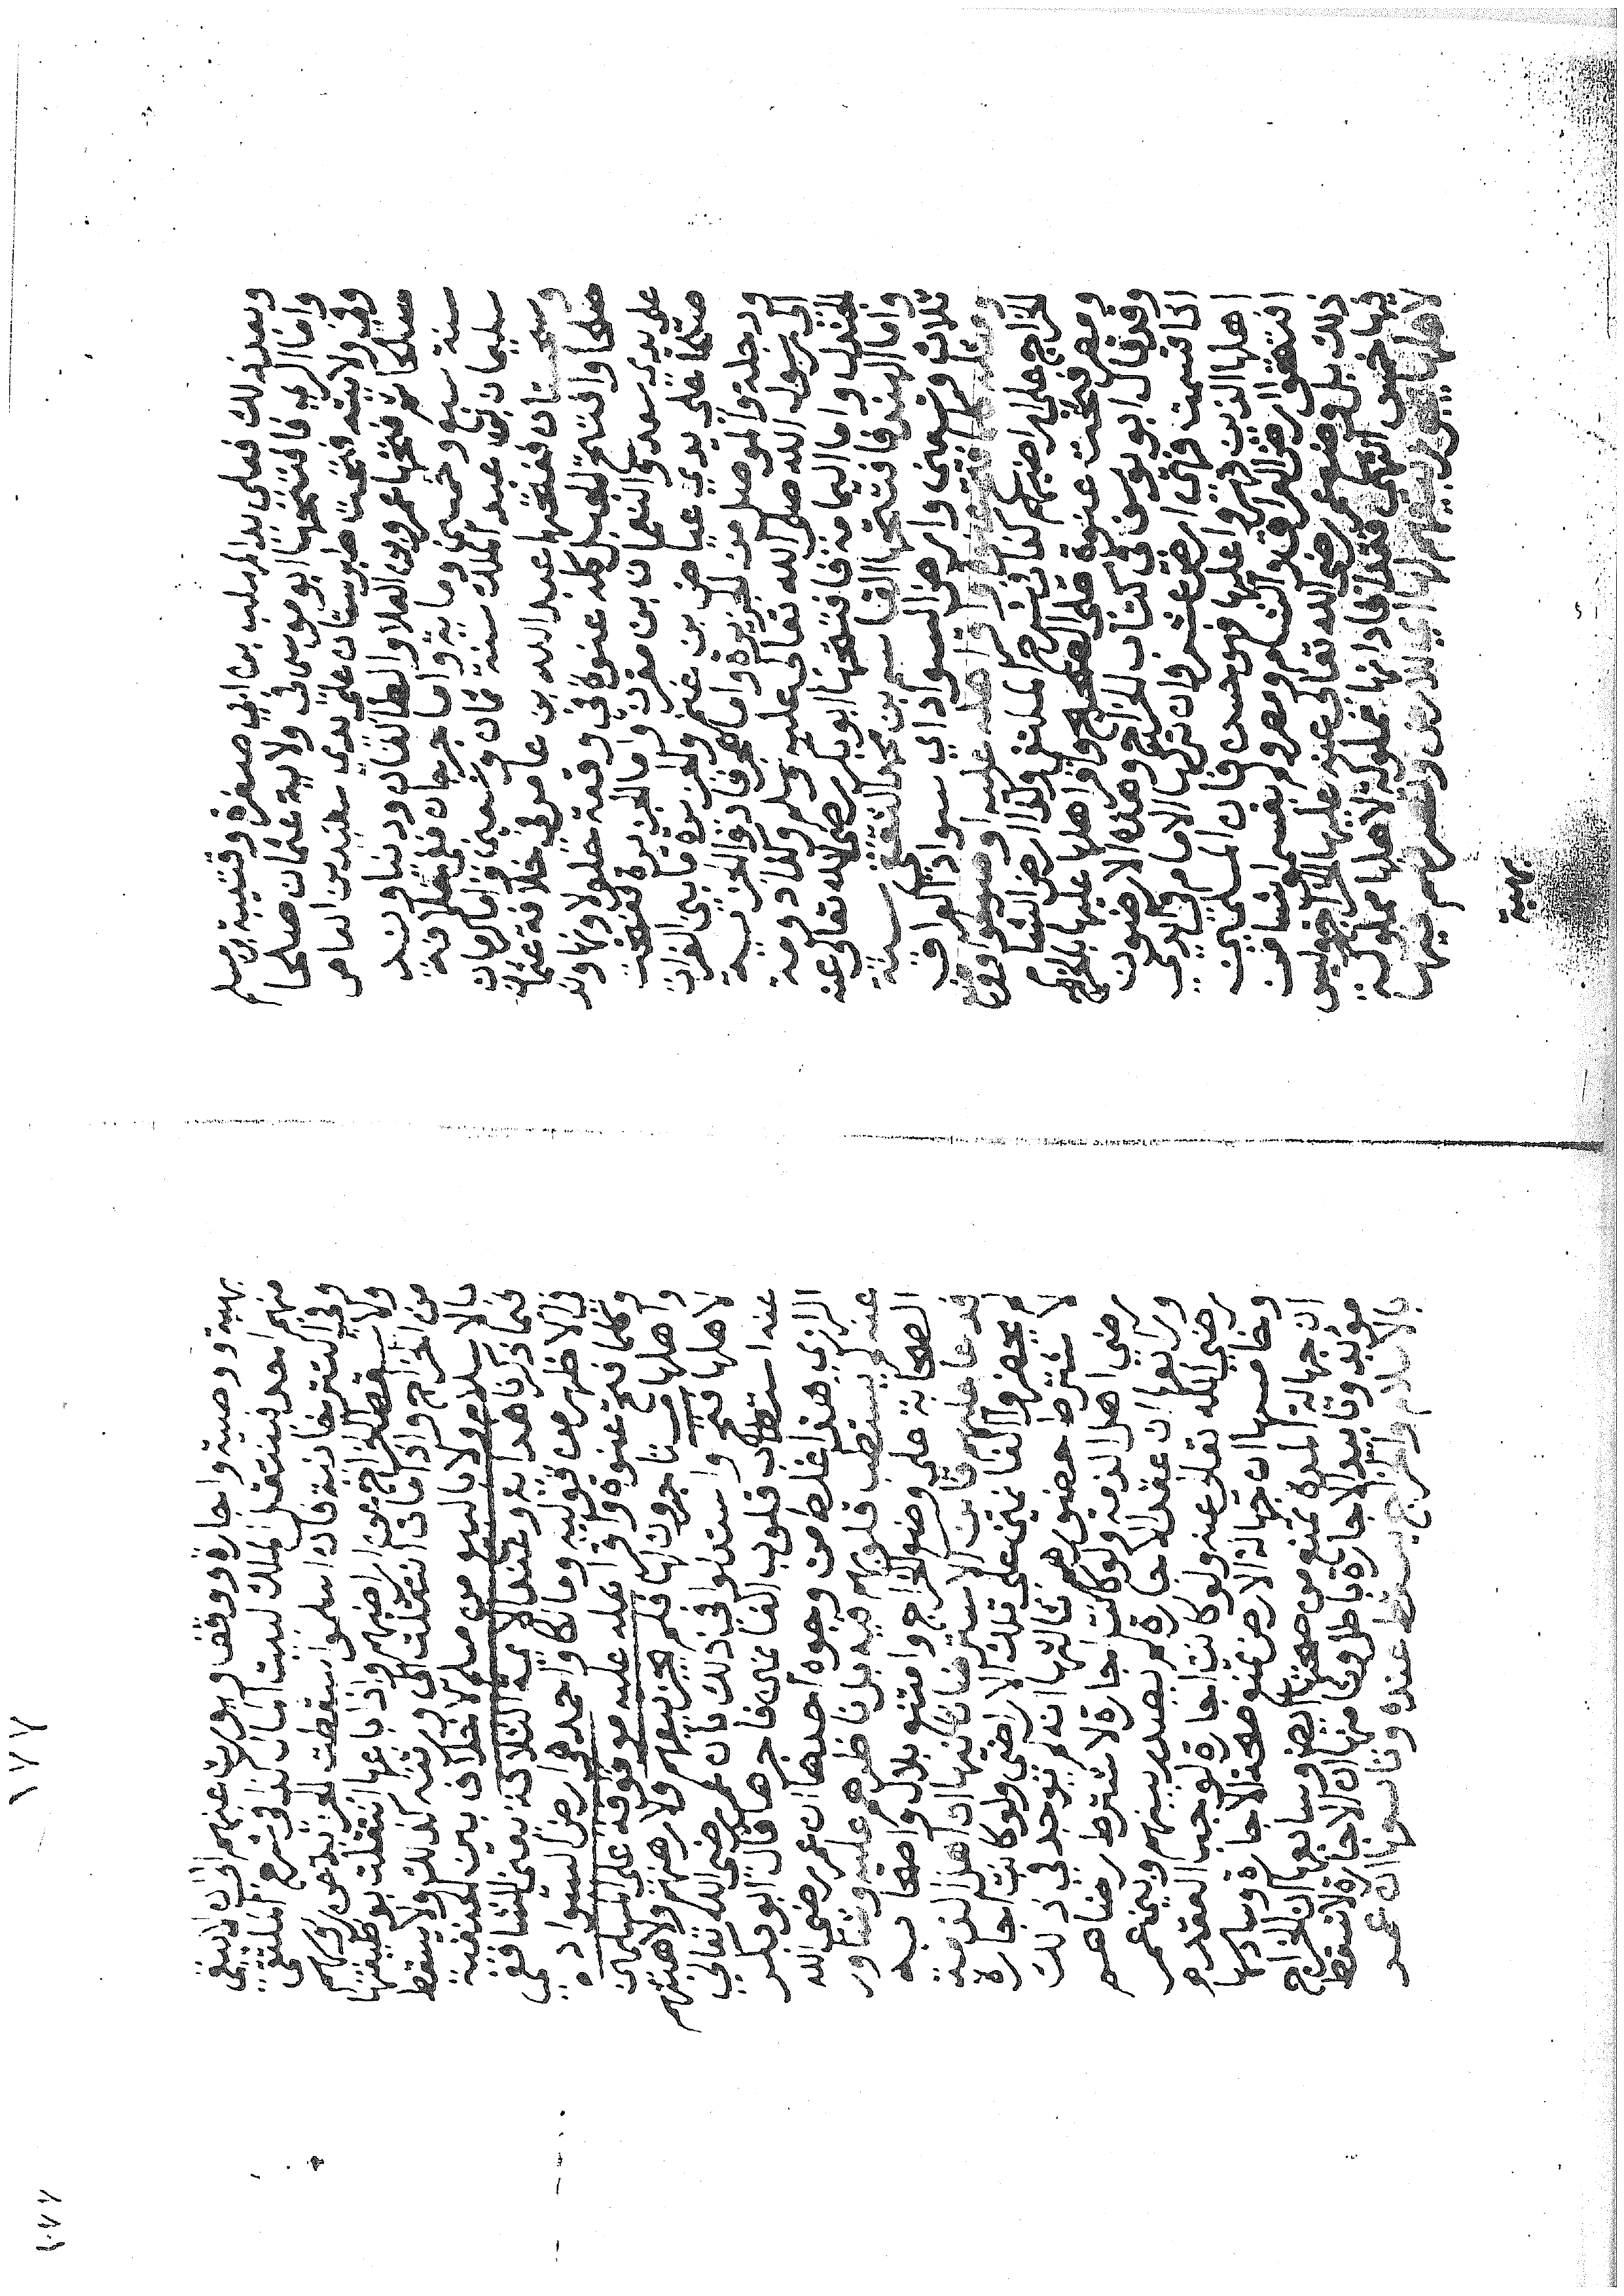 وبعد ذلك فعلى يد المهلب بن ابي صفرة وقتيبة بن مسلم
واما الري فافتتحها ابو موسى في ولاية عثمان صلحا
وفي ولايته فتحت طبرستان على يدي سعيد بن العاص
صلحا ثم فتحها عمرو بن العلاء والطالقان ودنباوند
سنة سبع وخمسين وماية واما جرجان ففي خلافة
سليمان بن عبد الملك سنة ثمان وتسعين واما كرمان
وسجستان ففتحها عبد الله بن عامر في خلافة عثمان
صلحا وافتتح الجبل كله عنوة في وقعة جلولا ونهاوند
على يدي سعد والنعمان بن مقرن واما الجزيرة ففتحت
صلحا على يدي عياض بن غنم والجزيرة ما بين الفرات
ودجلة والموصل من الجزيرة واما هجر فادوا الجزية
الى رسول الله صلى الله تعالى عليه وسلم وكذا دومة
الجندل واما اليمامة فافتتحها ابو بكر رضى الله تعالى عنه
واما الهند فافتتحها القاسم بن محمد الثقفي سنة
ثلاث وتسعين وارض السواد اي سواد العراق
فتح عنوة واقر اهله عليه او صولحوا ووضع
الخراج على اراضيهم كذا في شرح الملتقى وكذا ارض الشام
ومصر فتحت عنوة على الصحيح واقر اهلها عليها بالخراج
وقد قال ابو يوسف في كتاب الخراج وهذه الارضون
اذا قسمت فهي ارض عشر وان تركها الامام في ايدي
اهلها الذين قهروا عليها فهو حسن فان المسلمين
افتتحوا ارض العراق والشام ومصر ولم يقسموا شيئا من
ذلك بل وضع عمر رضى الله تعالى عنه عليها الخراج وليس
فيها خمس انتهى فقد افاد انها مملوكة لاهلها مملوكة
لاهلها يجوز بيعهم لها اي للارض وتصرفهم فيها
بهبة
بهبة ووصية واجارة ووقفا ويورث عنهم الى ان لا يبقى
منهم احد فينتقل الملك لبيت المال كذا في شرح الملتقى
وفي التترخانية فان اسلموا سقطت الجزية عن رؤسهم
ولا يسقط الخراج عن اراضيهم واذا باعها انتقلت بوظيفتها
من الخراج واذا مات انتقلت الى ورثته كذلك ولا يسقط
بالاسلام ولا بالبيع من مسلم لا خلاف بين الحنفية
فيما ذكرنا هذا به وعند الايمة الثلاثة يعني الشافعي
في الاظهر من قوليه ومالكا واحمد هي ارض السواد
وكلما فتح عنوة واقر اهله عليه موقوفة على المسلمين
واهلها مستاجرون لها فلم يجز بيعهم ولا رهنهم ولا هبتهم
لاهلها واستدلوا في ذلك بان عمر رضى الله تعالى
عنه استطاب قلوب الغانمين فاجرها قال ابو بكر
الرازي هذا غلط من وجوه احدها ان عمر رضى الله
عنه لم يستطب قلوبهم فيه بل ناظرهم عليه وشاور
الصحابة على وضع الخراج وامتنع بلال واصحابه
فدعا عليهم فاين الاسترضا ثانيها ان اهل الذمة
لم يحضروا الغانمين على تلك الاراضي ولو كانت اجارة
لاشترط حضورهم ثالثها انه لم يوجد في ذلك
رضي اهل الذمة ولو كانت اجارة لاشترط رضاهم
ورابعها ان عقد الاجارة لم يصدر بينهم وبين عمر
رضى الله تعالى عنه ولو كانت اجارة لوجب العقد
وخامسها ان جهالة الارض تمنع صحة الاجارة وسادسها
ان جهالة المدة تمنع من صحتها ايضا وسابعها ان الخراج
مؤبد وتابيد الاجارة باطل وثامنها ان الاجارة لا تسقط
بالاسلام والخراج يسقط عنده وتاسعها ان عمر
١٧٧